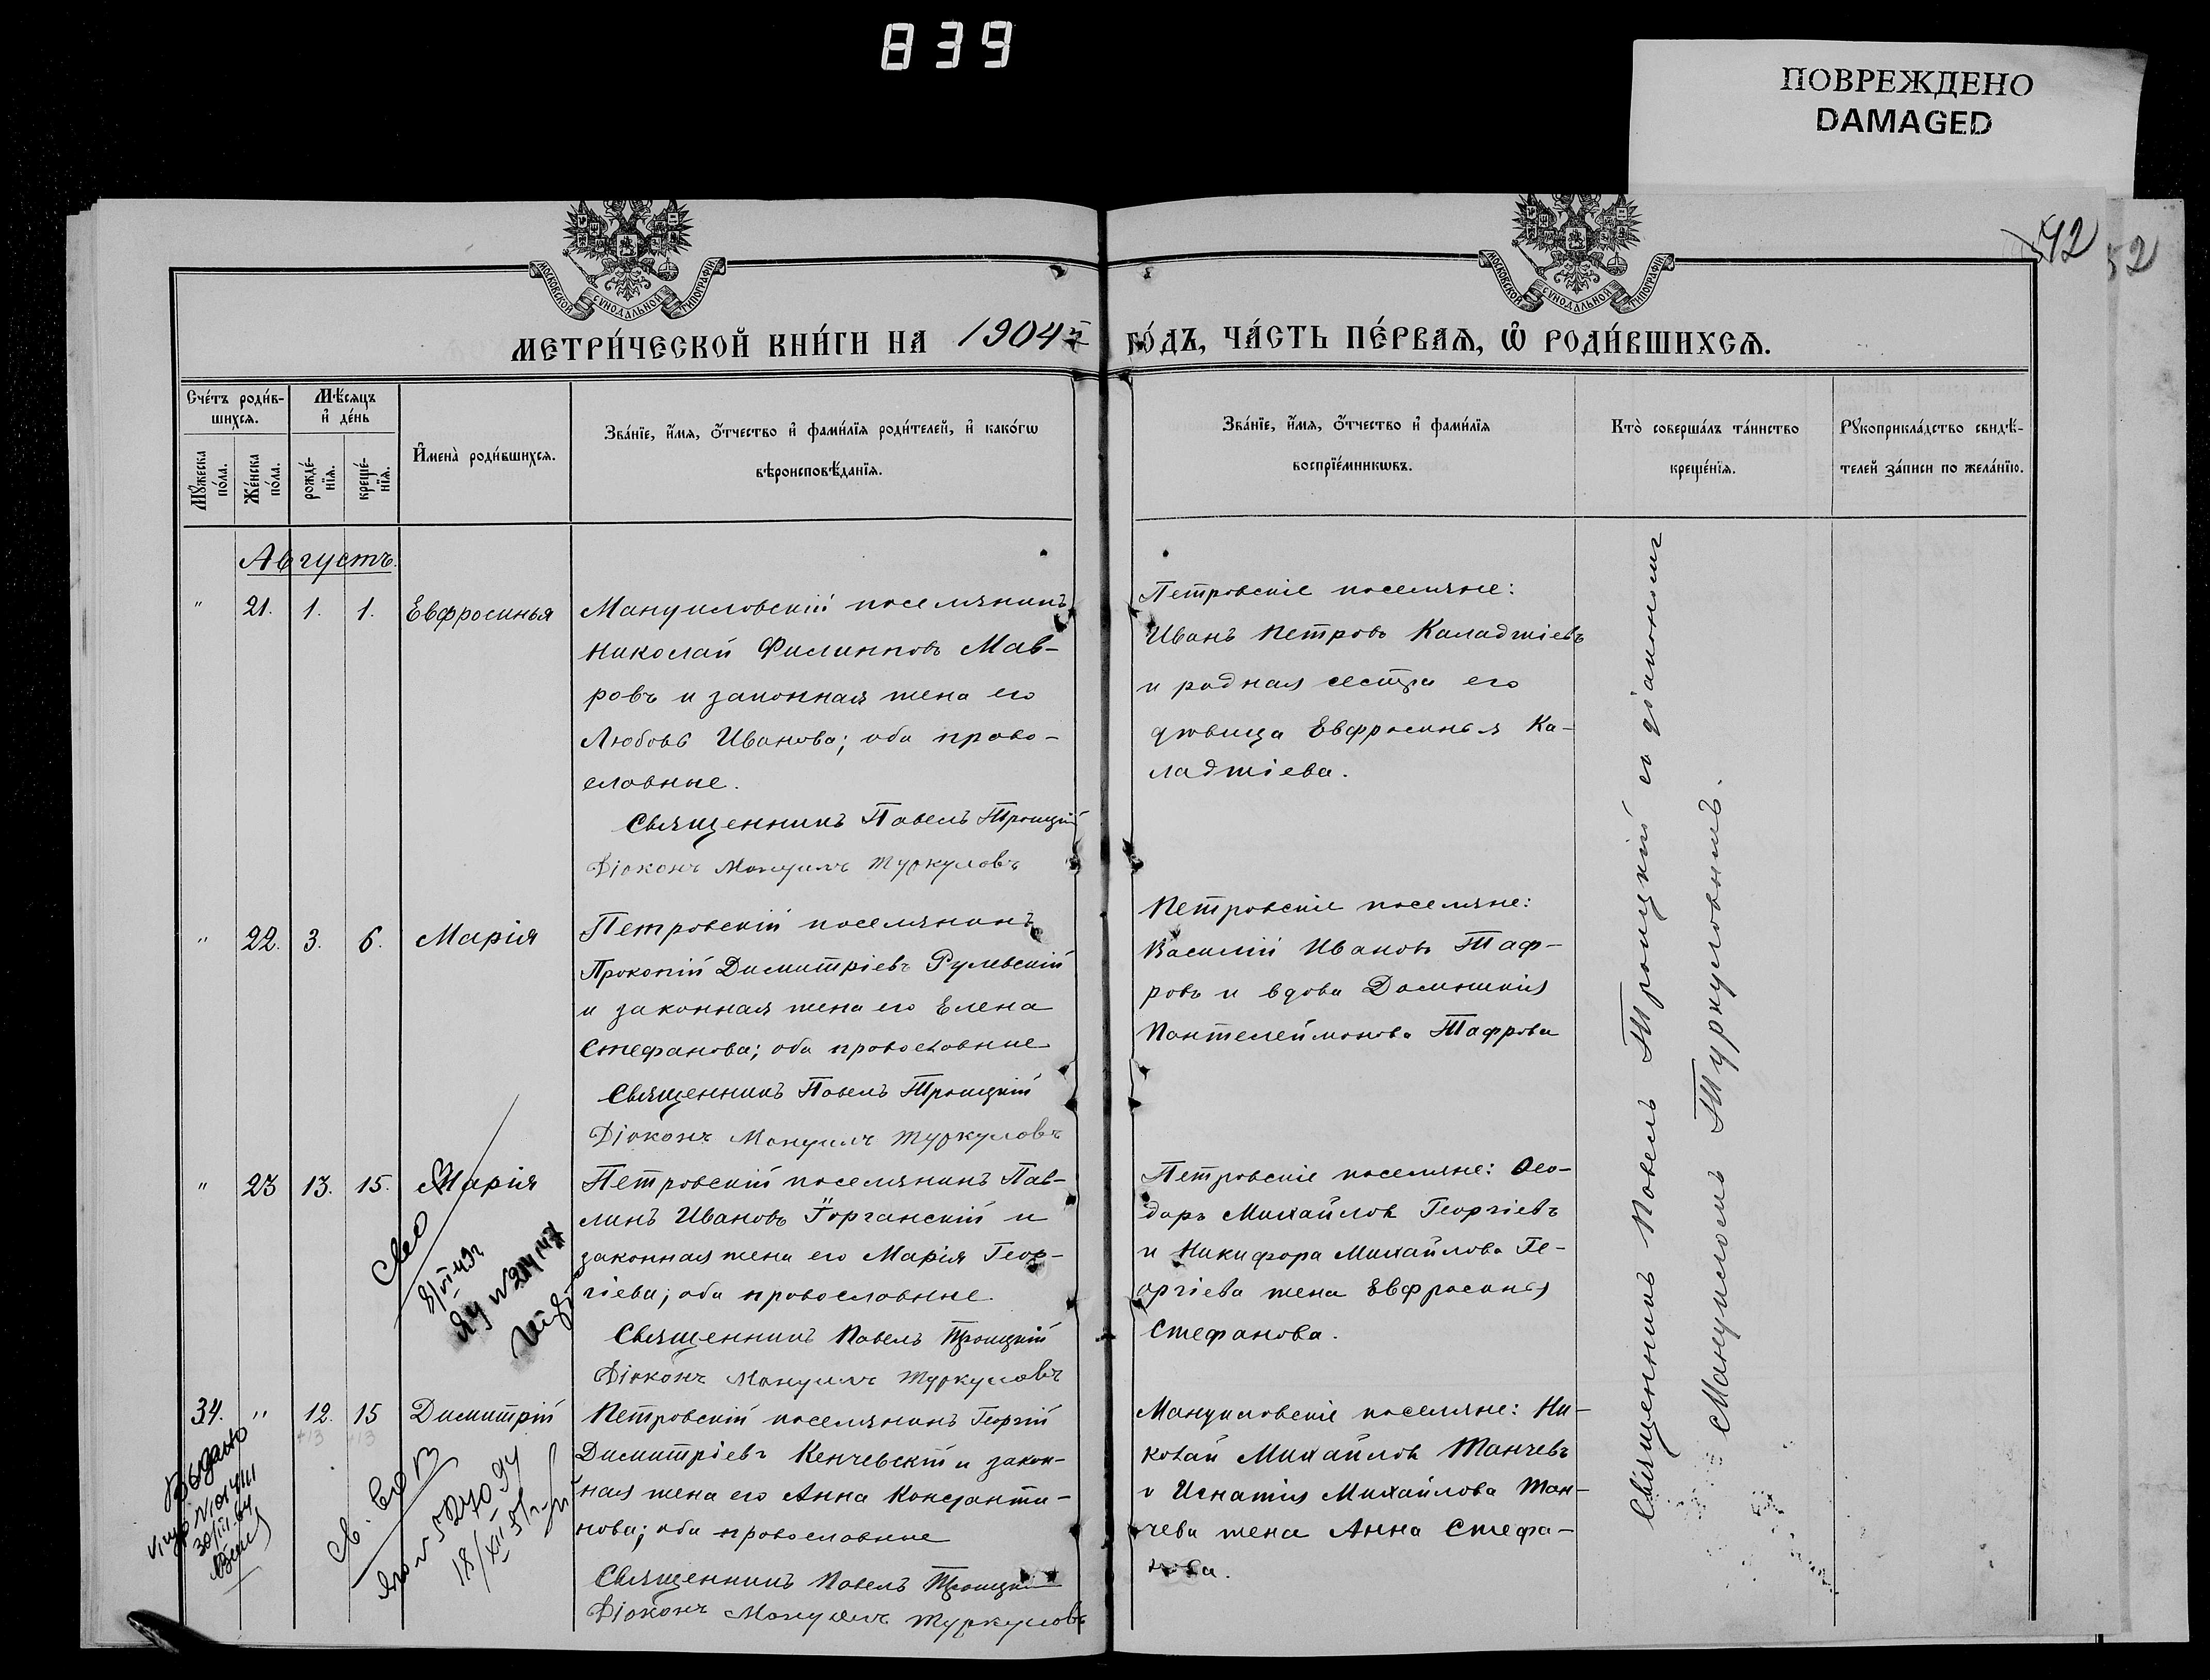 839
ПОВРЕЖДЕНО
DAMAGED
42
52
МОСКОВСКОЙ СѴНОДАЛЬНОЙ ТИПОГРАФІИ
МОСКОВСКОЙ СѴНОДАЛЬНОЙ ТИПОГРАФІИ
МЕТРИ́ЧЕСКОЙ КНИ́ГИ НА 1904й ГО́ДЪ, ЧА́СТЬ ПЕ́РВАѦ, Ѡ҆ РОДИ́ВШИХСѦ.
Сче́тъ роди́в-
шихсѧ.
Мꙋ́жеска по́ла.
Же́нска по́ла.
Мѣ́сѧцъ
и҆ де́нь
рожде́-
нїѧ.
креще́-
нїѧ.
И҆мена̀ роди́вшихсѧ.
Зва́нїе, и҆́мѧ, ѻ҆́тчество и҆ фами́лїѧ роди́телей, и҆ како́гѡ
вѣроисповѣ́данїѧ.
Зва́нїе, и҆́мѧ, ѻ҆́тчество и҆ фами́лїѧ
воспрїе́мникѡвъ.
Кто̀ соверша́лъ та́инство
креще́нїѧ.
Рꙋкоприкла́дство свидѣ́-
телей за́писи по жела́нїю.
Августъ.
" 21. 1. 1. Евфросинья
Мануиловскій поселянинъ
Николай Филипповъ Мав-
ровъ и законная жена его
Любовь Иванова; оба право-
славные.
Священникъ Павелъ Троицкій
Діаконъ Мануилъ Туркуловъ
Петровскіе поселяне:
Иванъ Петровъ Каладжіевъ
и родная сестра его
дѣвица Евфросинья Ка-
ладжіева.
" 22. 3. 6. Марія
Петровскій поселянинъ
Прокопій Димитріевъ Рулевскій
и законная жена его Елена
Стефанова; оба православные
Священникъ Павелъ Троицкій
Діаконъ Мануилъ Туркуловъ
Петровскіе поселяне:
Василій Ивановъ Таф-
ровъ и вдова Домникія
Пантелеймонова Тафрова
" 23 13. 15. Марія
Петровскій поселянинъ Пав-
линъ Ивановъ Горганскій и
законная жена его Марія Геор-
гіева; оба православные.
Священникъ Павелъ Троицкій
Діаконъ Мануилъ Туркуловъ
Петровскіе поселяне: Ѳео-
доръ Михайловъ Георгіевъ
и Никифора Михайлова Ге-
оргіева жена Евфросинья
Стефанова.
34. " 12. 15 Димитрій
+13 +13
Петровскій поселянинъ Георгій
Димитріевъ Кенчевскій и закон-
ная жена его Анна Константи-
нова; оба православные
Священникъ Павелъ Троицкій
Діаконъ Мануилъ Туркуловъ
Мануиловскіе поселяне: Ни-
колай Михайловъ Танчевъ
и Игнатія Михайлова Тан-
чева жена Анна Стефа-
нова.
Выдано
18/XII
Священникъ Павелъ Троицкій со діакономъ
Мануиломъ Туркуловымъ.